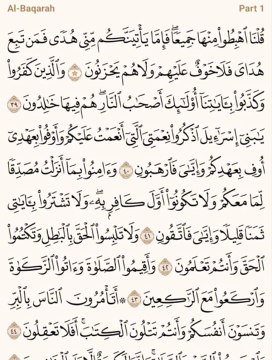 Al-Baqarah Part 1
قُلْنَا ٱهْبِطُوا۟ مِنْهَا جَمِيعًا ۖ فَإِمَّا يَأْتِيَنَّكُم مِّنِّى هُدًى فَمَن تَبِعَ
هُدَاىَ فَلَا خَوْفٌ عَلَيْهِمْ وَلَا هُمْ يَحْزَنُونَ ٣٨ وَٱلَّذِينَ كَفَرُوا۟
وَكَذَّبُوا۟ بِـَٔايَـٰتِنَآ أُو۟لَـٰٓئِكَ أَصْحَـٰبُ ٱلنَّارِ ۖ هُمْ فِيهَا خَـٰلِدُونَ ٣٩
يَـٰبَنِىٓ إِسْرَٰٓءِيلَ ٱذْكُرُوا۟ نِعْمَتِىَ ٱلَّتِىٓ أَنْعَمْتُ عَلَيْكُمْ وَأَوْفُوا۟ بِعَهْدِىٓ
أُوفِ بِعَهْدِكُمْ وَإِيَّـٰىَ فَٱرْهَبُونِ ٤٠ وَءَامِنُوا۟ بِمَآ أَنزَلْتُ مُصَدِّقًا
لِّمَا مَعَكُمْ وَلَا تَكُونُوٓا۟ أَوَّلَ كَافِرٍۭ بِهِۦ ۖ وَلَا تَشْتَرُوا۟ بِـَٔايَـٰتِى
ثَمَنًا قَلِيلًا وَإِيَّـٰىَ فَٱتَّقُونِ ٤١ وَلَا تَلْبِسُوا۟ ٱلْحَقَّ بِٱلْبَـٰطِلِ وَتَكْتُمُوا۟
ٱلْحَقَّ وَأَنتُمْ تَعْلَمُونَ ٤٢ وَأَقِيمُوا۟ ٱلصَّلَوٰةَ وَءَاتُوا۟ ٱلزَّكَوٰةَ
وَٱرْكَعُوا۟ مَعَ ٱلرَّٰكِعِينَ ٤٣ ۞ أَتَأْمُرُونَ ٱلنَّاسَ بِٱلْبِرِّ
وَتَنسَوْنَ أَنفُسَكُمْ وَأَنتُمْ تَتْلُونَ ٱلْكِتَـٰبَ ۚ أَفَلَا تَعْقِلُونَ ٤٤